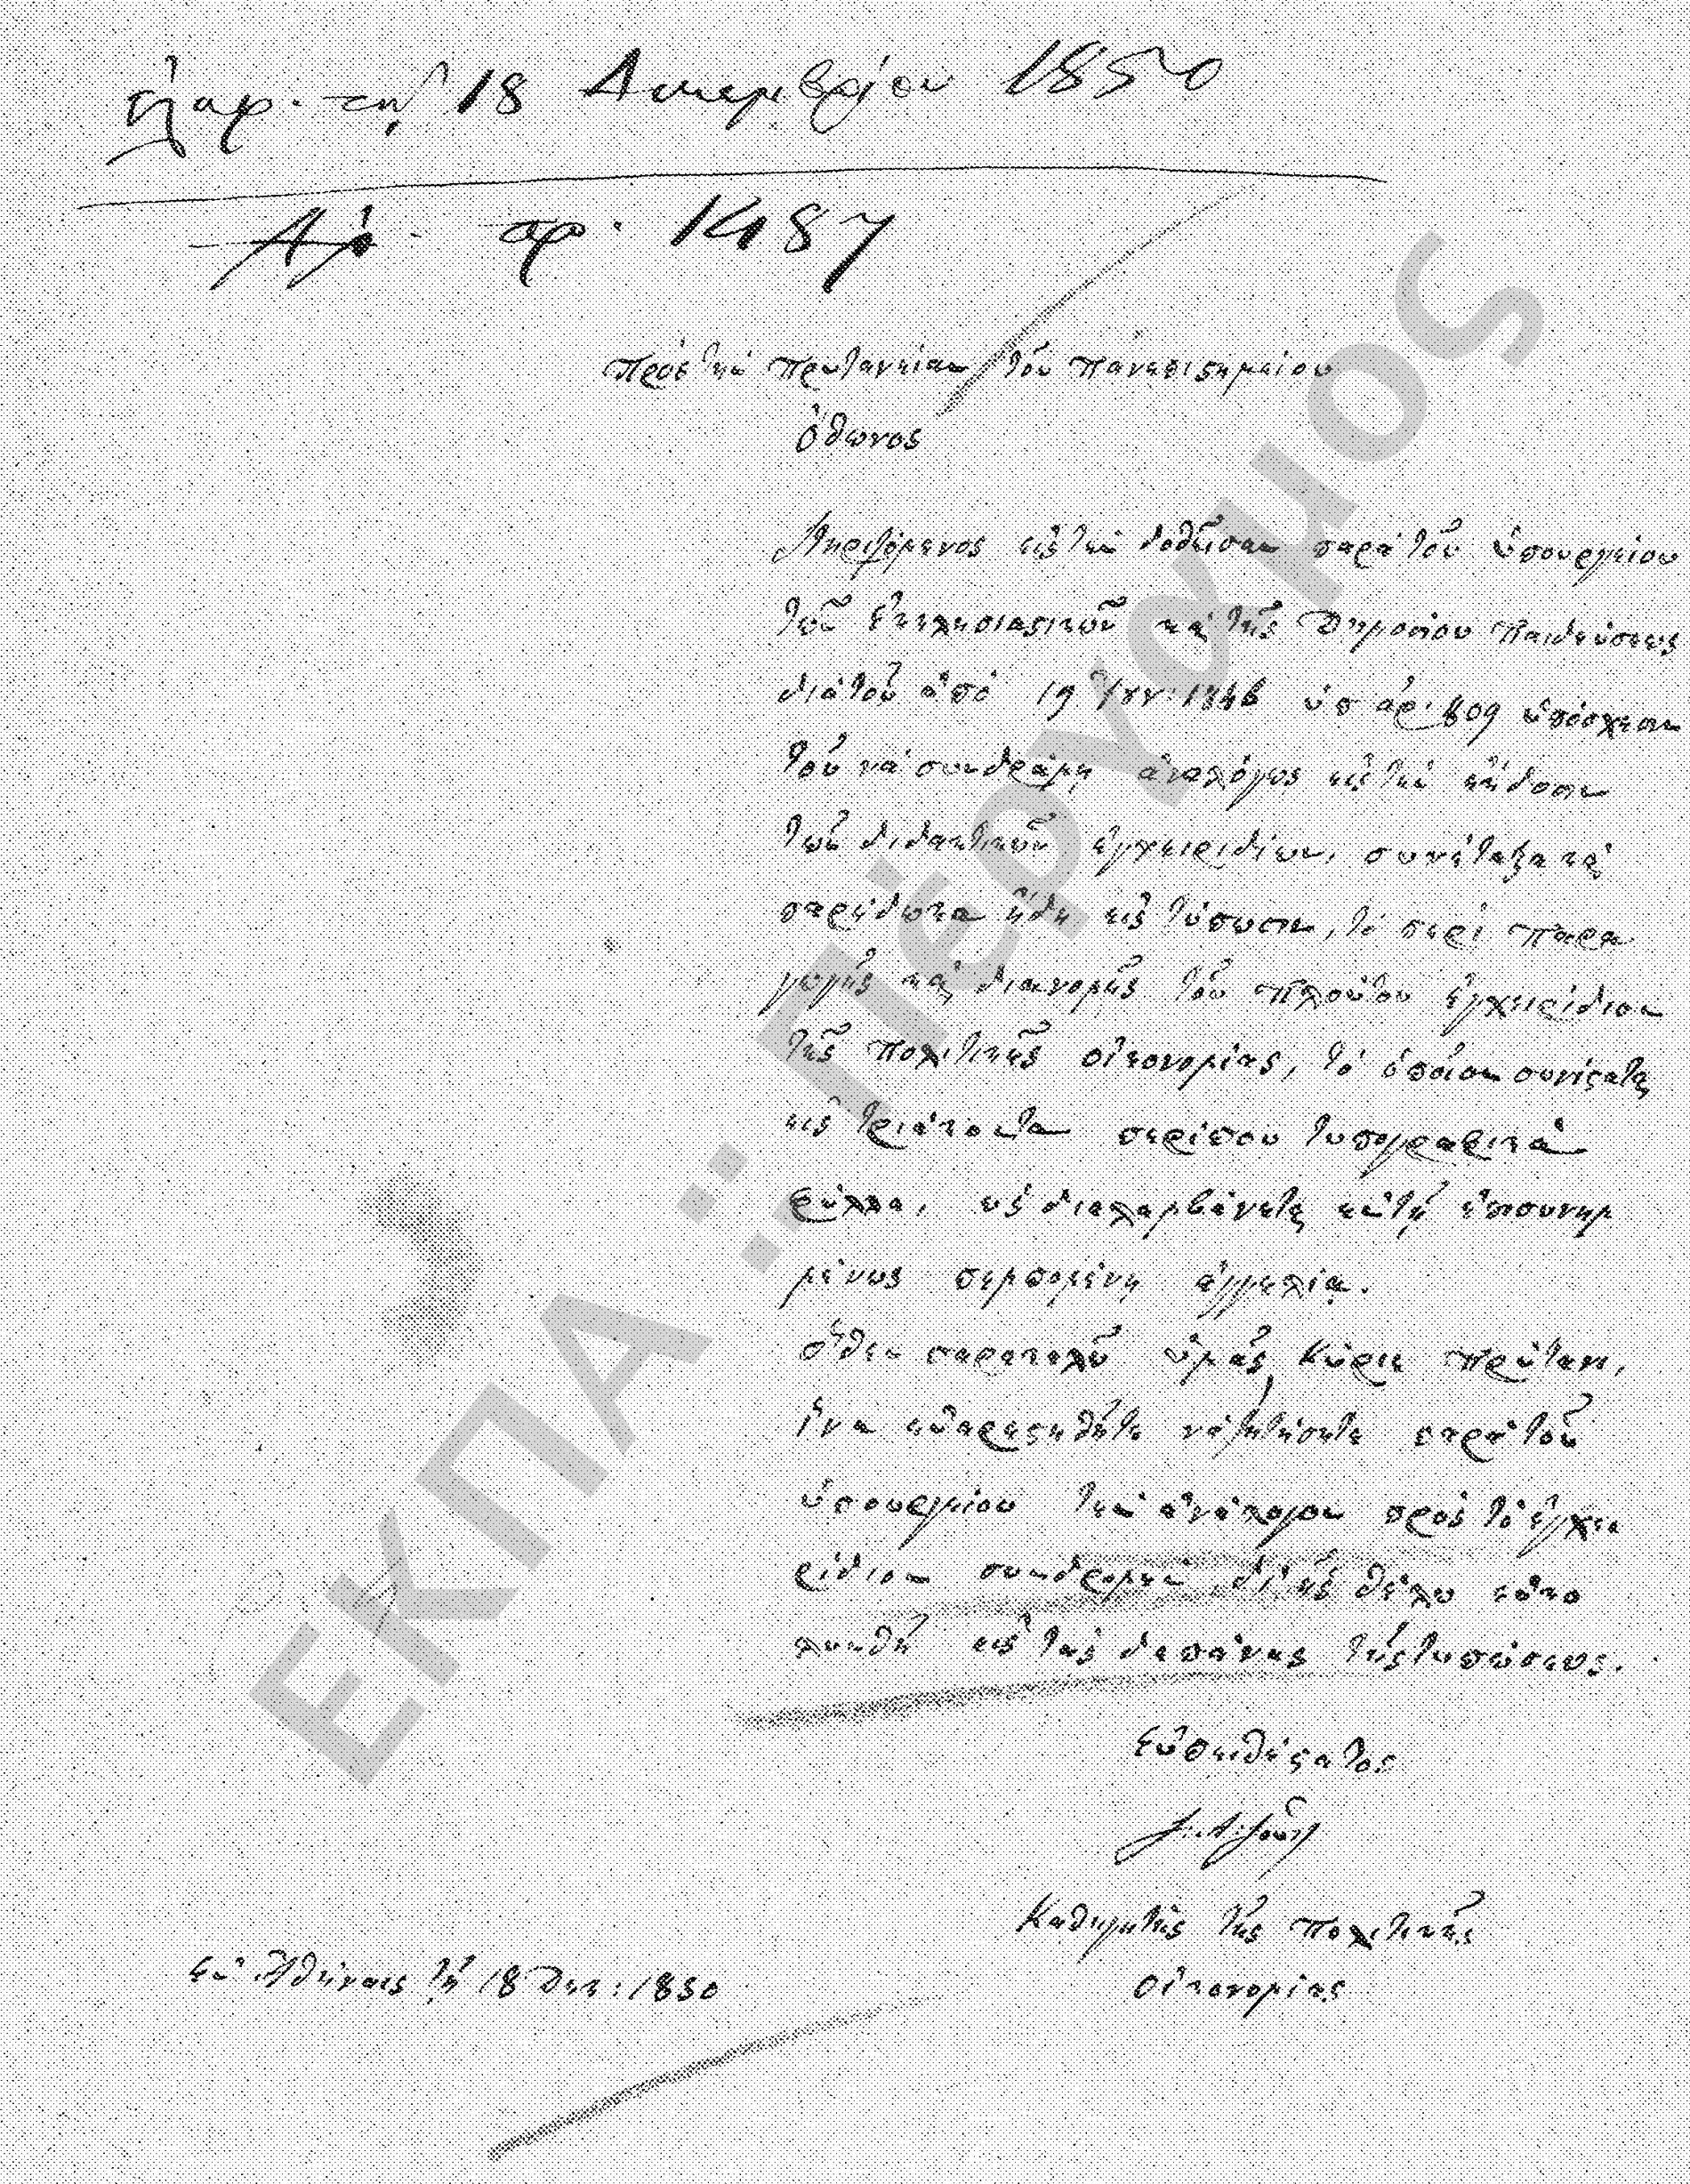 ἐλαβ. τῇ 18 Δεκεμβρίου 1850
Ἀρ. πρ. 1487
Πρὸς τὴν Πρυτανείαν τοῦ Πανεπιστημείου
Ὄθωνος
Στηριζόμενος εἰς τὴν δοθεῖσαν παρὰ τοῦ ὑπουργείου
τῶν Ἐκκλησιαστικῶν καὶ τῆς Δημοσίου Παιδεύσεως
διὰ τοῦ ἀπὸ 19 ὑπ' ἀρ. 809 ὑπόσχεσιν
τοῦ νὰ συνδράμῃ ἀναλόγως εἰς τὴν ἔκδοσιν
τῶν διδακτικῶν ἐγχειριδίων, συνέταξα καὶ
παρέδωκα ἤδη εἰς τύπωσιν, τὸ περὶ Παρα
γωγῆς καὶ διανομῆς τοῦ Πλούτου ἐγχειρίδιον
τῆς Πολιτικῆς Οἰκονομίας, τὸ ὁποῖον συνίσταται
εἰς τριάκοντα περίπου τυπογραφικὰ
φύλλα, ὡς διαλαμβάνεται καὶ τῇ ἐπισυνημ
μένως πεμπομένῃ ἀγγελίᾳ.
ὅθεν παρακαλῶ ὑμᾶς, Κύριε Πρύτανι,
ἵνα εὐαρεστηθῆτε νὰ ζητήσητε παρὰ τοῦ
ὑπουργείου τὴν ἀνάλογον πρὸς τὸ ἐγχει
ρίδιον συνδρομὴν, δι' ἧς θέλω εὐκο
λυνθῆ εἰς τὰς δαπάνας τῆς τυπώσεως.
Εὐπειθέστατος
Καθηγητὴς τῆς Πολιτικῆς
Οἰκονομίας
Ἐν Ἀθήναις τῇ 18 Δεκ: 1850
ΕΚΠΑ :: Πέργαμος